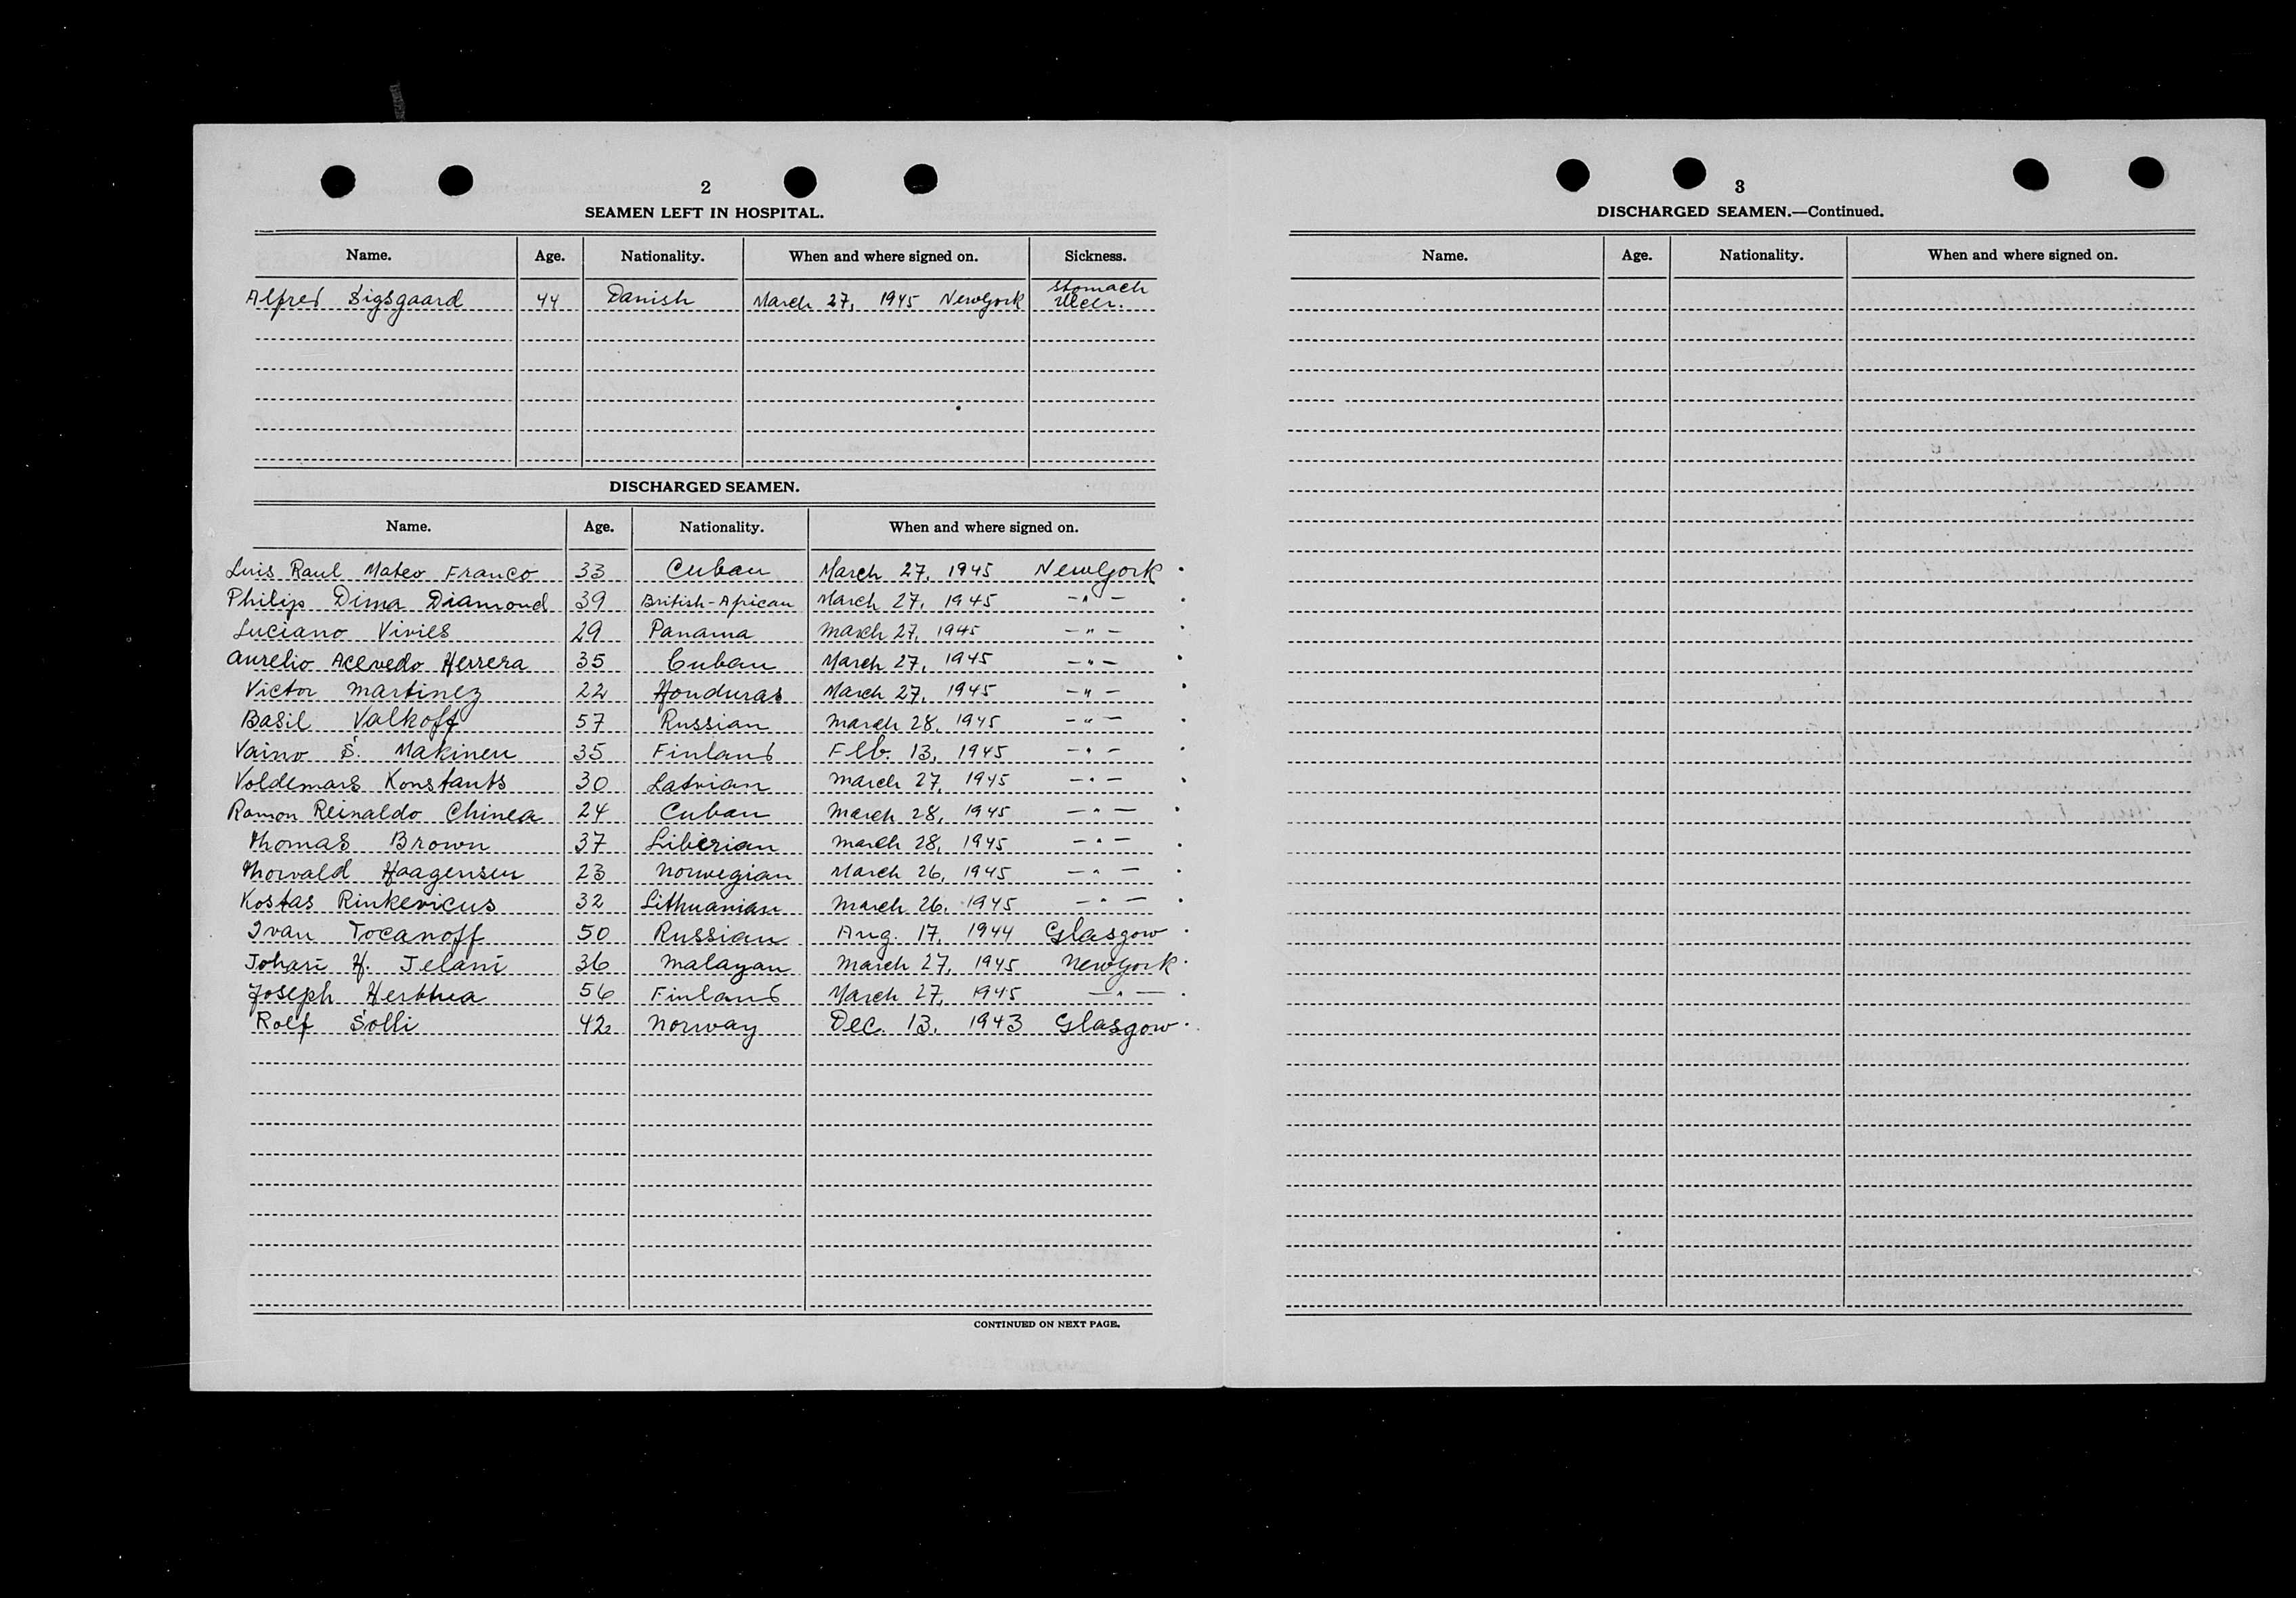 2
SEAMEN LEFT IN HOSPITAL.
Name. Age. Nationality. When and where signed on. Sickness.
Alfred Sigsgaard 44 Danish March 27, 1945 New York stomach Ulcer.
DISCHARGED SEAMEN.
Name. Age. Nationality. When and where signed on.
Luis Raul Mateo Franco 33 Cuban March 27, 1945 New York
Philip Dima Diamond 39 British-African March 27, 1945 -"-
Luciano Vivies 29 Panama March 27, 1945 -"-
Aurelio Acevedo Herrera 35 Cuban March 27, 1945 -"-
Victor Martinez 22 Honduras March 27, 1945 -"-
Basil Valkoff 57 Russian March 28, 1945 -"-
Vaino S. Makinen 35 Finland Feb. 13, 1945 -"-
Voldemars Konstants 30 Latvian March 27, 1945 -"-
Ramon Reinaldo Chinea 24 Cuban March 28, 1945 -"-
Thomas Brown 37 Liberian March 28, 1945 -"-
Thorvald Haagensen 23 Norwegian March 26, 1945 -"-
Kostas Rinkevicus 32 Lithuanian March 26, 1945 -"-
Ivan Tocanoff 50 Russian Aug. 17, 1944 Glasgow
Johari H. Jelani 36 Malayan March 27, 1945 New York
Joseph 56 Finland March 27, 1945 -"-
Rolf Solli 42 Norway Dec. 13, 1943 Glasgow
CONTINUED ON NEXT PAGE.
3
DISCHARGED SEAMEN.—Continued.
Name. Age. Nationality. When and where signed on.